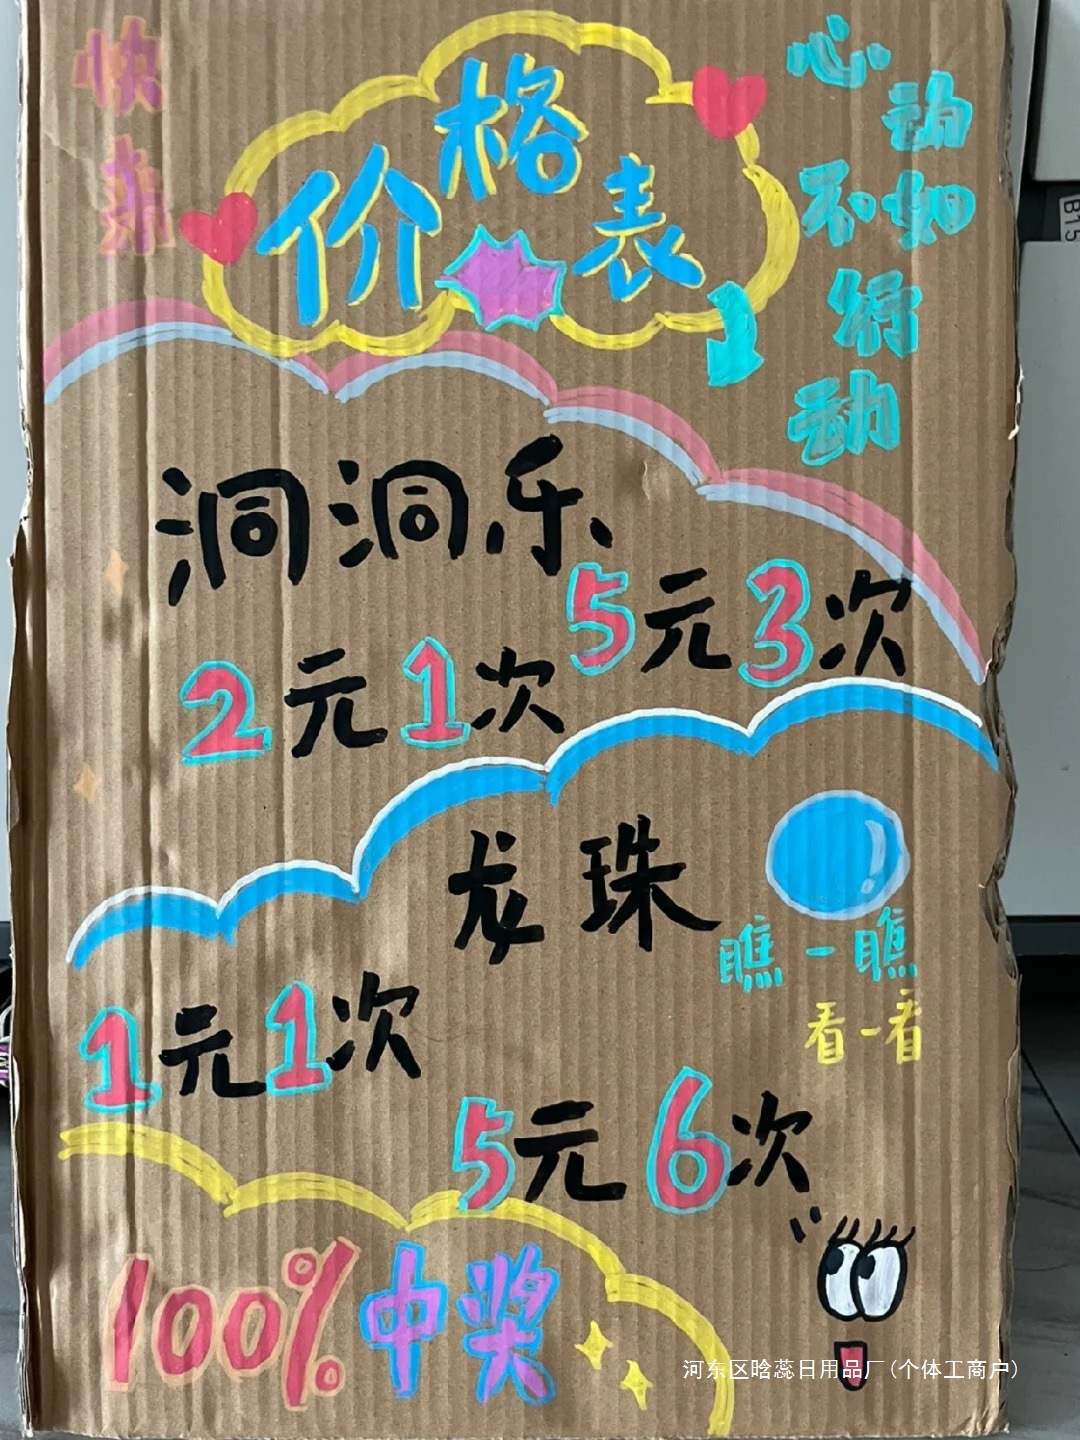 快来
价格表
心动不如行动
洞洞乐
5元3次
2元1次
龙珠
瞧一瞧
看一看
1元1次
5元6次
100%中奖
河东区晗蕊日用品厂(个体工商户)